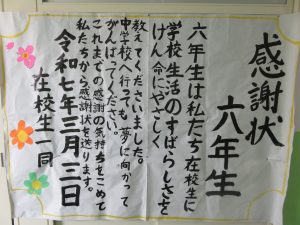 感謝状
六年生
六年生は私たち在校生に
学校生活のすばらしさを
けん命にやさしく
教えてくださいました。
中学校へ行っても、夢に向かって
がんばってください。
これまでの感謝の気持ちをこめて
私たちから感謝状を送ります。
令和七年三月三日
在校生一同